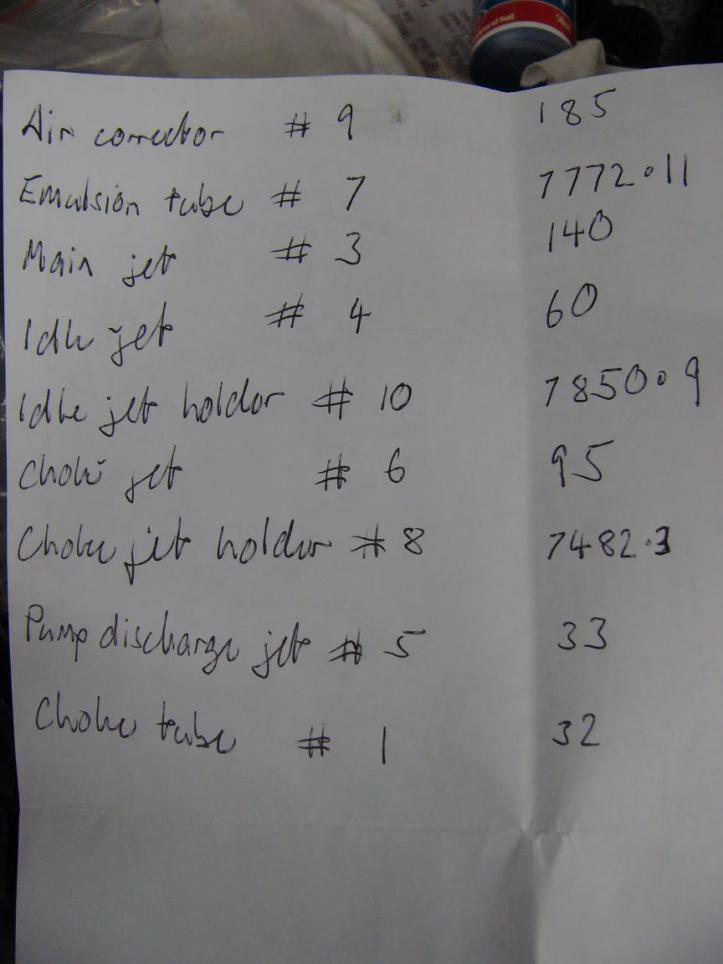 Air corrector # 9 185
Emulsion tube # 7 7772.11
Main jet # 3 140
Idle jet # 4 60
Idle jet holder # 10 7850.9
Choke jet # 6 95
Choke jet holder # 8 7482.3
Pump discharge jet # 5 33
Choke tube # 1 32